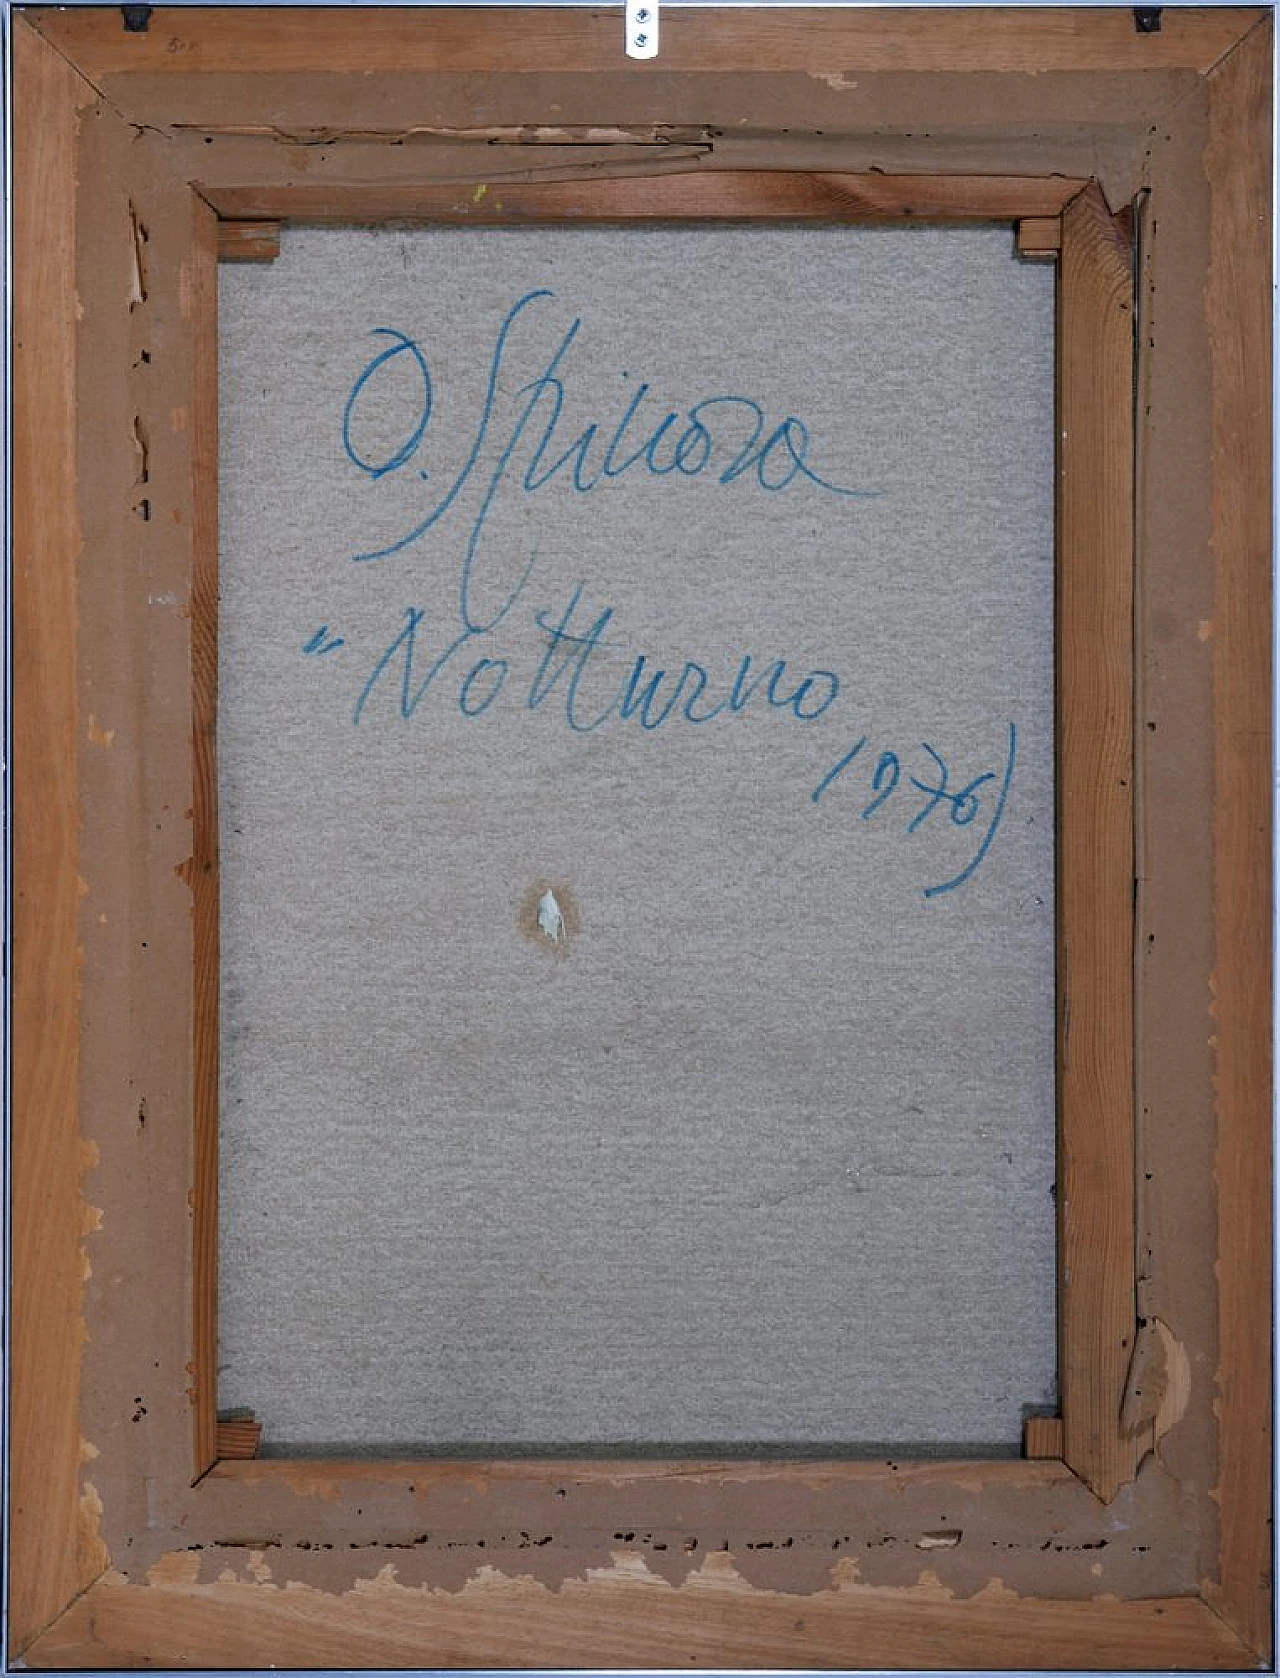 O. Spinosa
" Notturno
1976)